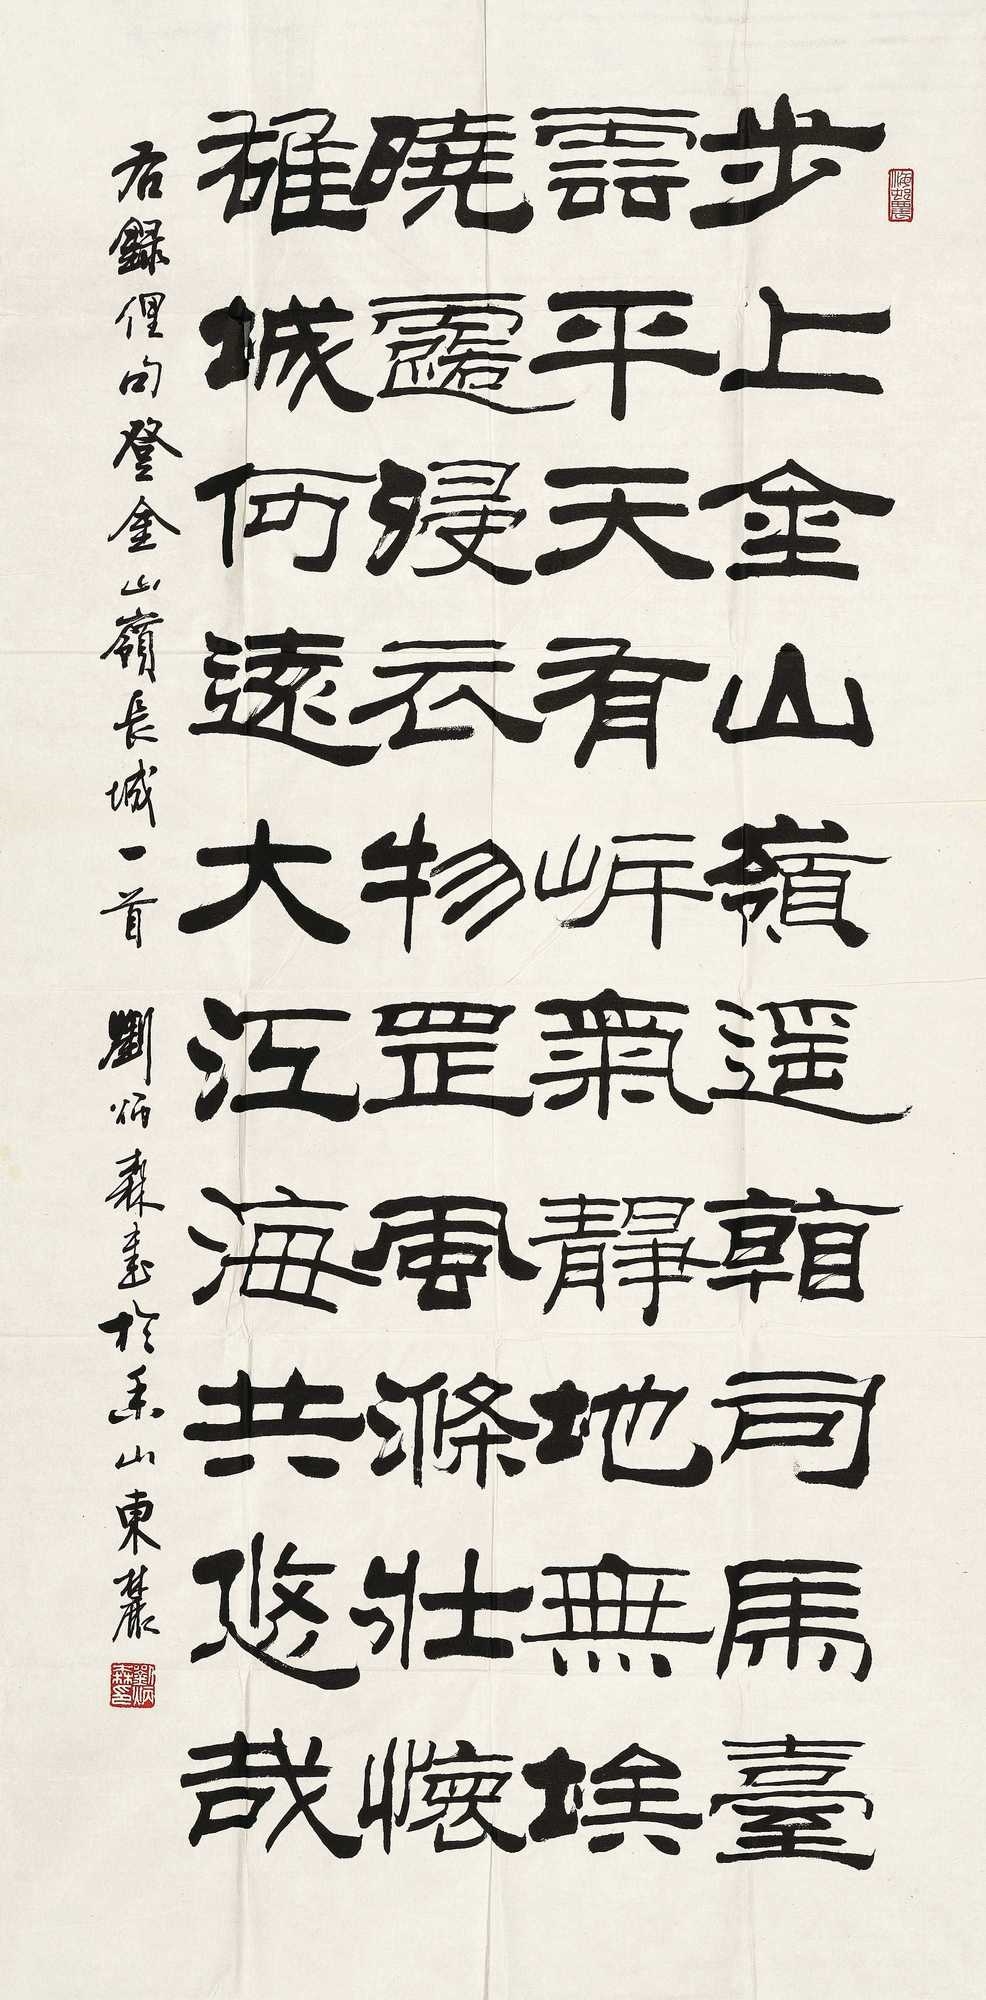 步上金山嶺遥朝司馬臺
雲平天有岸氣靜地無埃
曉露浸衣物罡風滌壯懷
雄城何遠大江海共悠哉
右録俚句登金山嶺長城一首 劉炳森書於香山東麓
劉炳森印